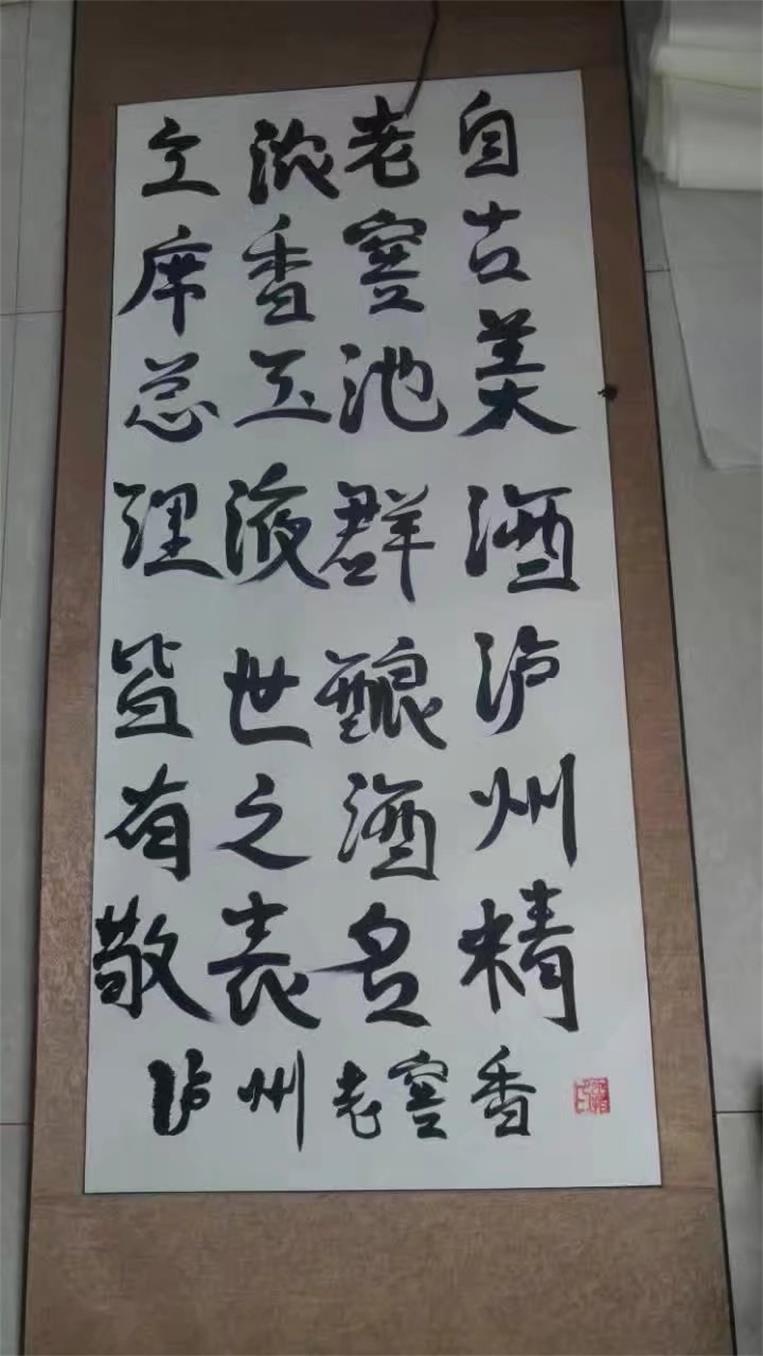 自古美酒泸州精
老窖池群酿酒名
浓香玉液世之表
主席总理皆有敬
泸州老窖香